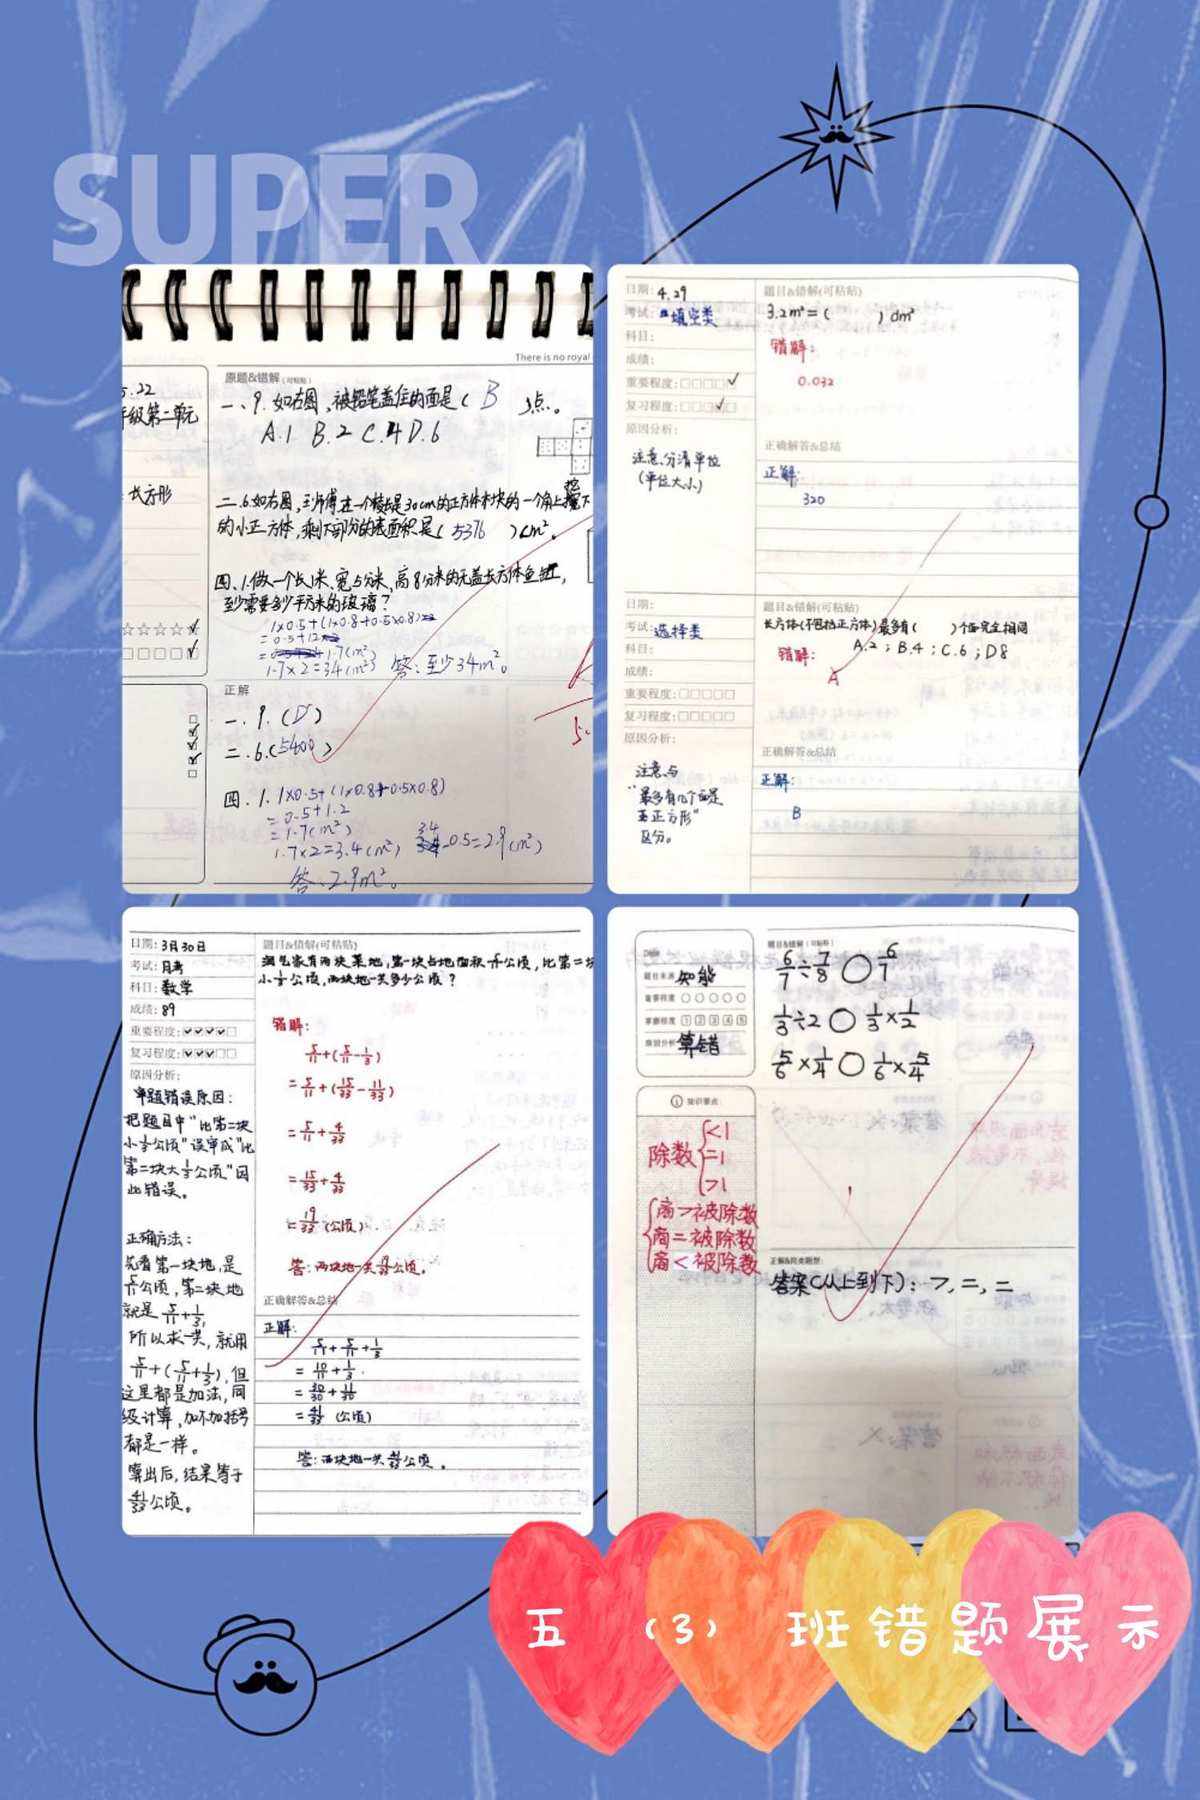 SUPER
There is no royal
5.22
原题&错解(可粘贴)
一、9.如右图,被铅笔盖住的面是( B )点。
A.1 B.2 C.4 D.6
级第二单元
长方形
的小正方体,剩下部分的表面积是( 5376 )cm²。
四、1.做一个长1米、宽5分米、高8分米的无盖长方体鱼缸,
至少需要多少平方米的玻璃?
1×0.5+(1×0.8+0.5×0.8)
1.7×2=34(m²) 答:至少34m²。
正解
一.9.(D)
二.6.(5400)
四.1. 1×0.5+(1×0.8+0.5×0.8)
=0.5+1.2
=1.7(m²)
1.7×2=3.4(m²) 3.4-0.5=2.9(m²)
答:2.9m²。
日期:4.29
考试:填空类
科目:
成绩:
重要程度:
复习程度:
原因分析:
注意、分清单位
(单位大小)
题目&错解(可粘贴)
3.2m²=( )dm²
错解:
0.032
正确解答&总结
正解:
320
日期:
考试:选择类
科目:
成绩:
重要程度:
复习程度:
原因分析:
注意、与
“最多有几个面是
正方形”
区分。
题目&错解(可粘贴)
长方体(不包括正方体)最多有( )个面完全相同
A.2;B.4;C.6;D8
错解:
A
正确解答&总结
正解:
B
日期:3月30日
考试:月考
科目:数学
成绩:89
重要程度:
复习程度:
原因分析:
审题错误原因:
把题目中“比第二块
小1/3公顷”误审成“比
第二块大1/3公顷”因
此错误。
正确方法:
先看第一块地,是
5/11公顷,第二块地
就是5/11+1/3,
所以求一共,就用
5/11+(5/11+1/3),但
这里都是加法,同
级计算,加不加括号
都是一样。
算出后,结果等于
公顷。
题目&错解(可粘贴)
淘气家有两块菜地,第一块占地面积5/11公顷,比第二块
小1/3公顷,两块地一共多少公顷?
错解:
5/11+(5/11-1/3)
=5/11+(15/33-11/33)
=5/11+4/33
=15/33+4/33
=19/33(公顷)
答:两块地一共19/33公顷。
正确解答&总结
正解:
5/11+5/11+1/3
=10/11+1/3
(公顷)
答:两块地一共公顷。
题目来源 知能
重要程度
掌握程度 1 2 3 4 5
原因分析 算错
知识要点
除数{<1
=1
>1
{商>被除数
商=被除数
商<被除数
题目&错解(可粘贴)
6/7÷7/8○6/7
1/3÷2○1/3×1/2
5/6×1/4○1/6×5/4
答案(从上到下):>,=,=
五(3)班错题展示